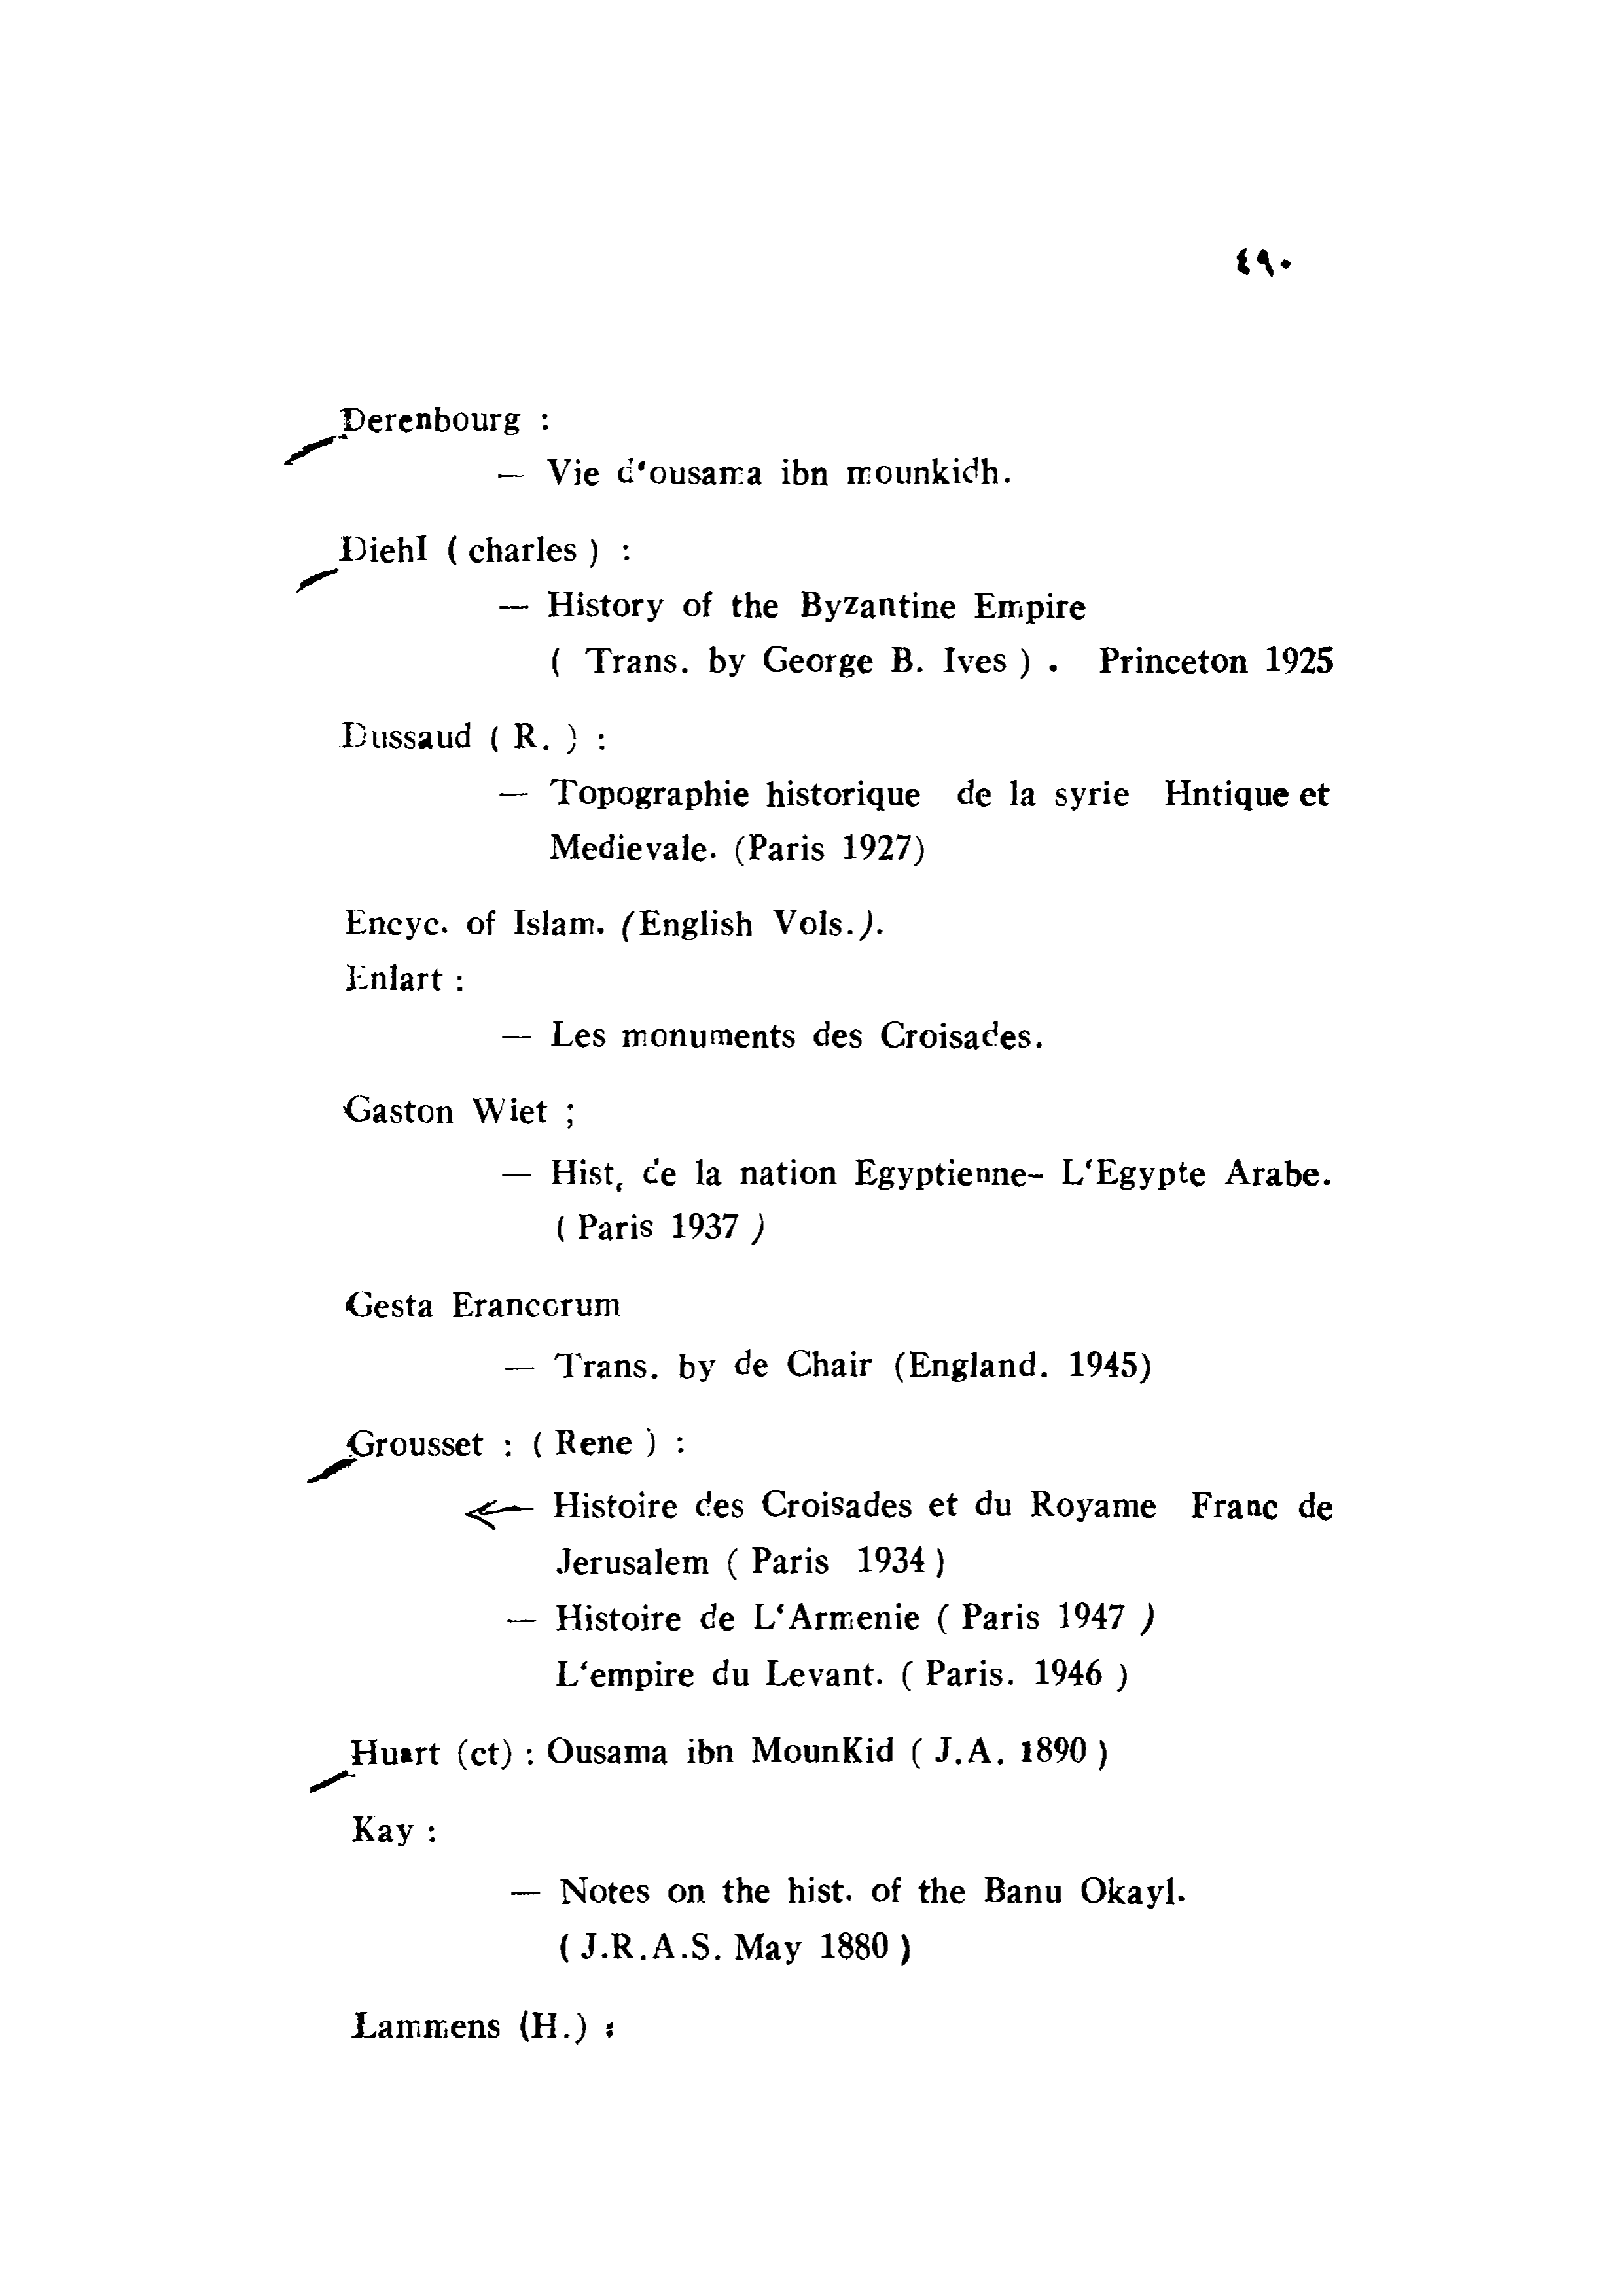 ٤٩٠
Derenbourg :
— Vie d'ousama ibn mounkidh.
Diehl ( charles ) :
— History of the Byzantine Empire
( Trans. by George B. Ives ) . Princeton 1925
Dussaud ( R. ) :
— Topographie historique de la syrie Hntique et
Medievale. (Paris 1927)
Encyc. of Islam. (English Vols.).
Enlart :
— Les monuments des Croisades.
Gaston Wiet ;
— Hist, de la nation Egyptienne- L'Egypte Arabe.
( Paris 1937 )
Gesta Erancorum
— Trans. by de Chair (England. 1945)
Grousset : ( Rene ) :
— Histoire des Croisades et du Royame Franc de
Jerusalem ( Paris 1934 )
— Histoire de L'Armenie ( Paris 1947 )
L'empire du Levant. ( Paris. 1946 )
Huart (ct) : Ousama ibn MounKid ( J.A. 1890 )
Kay :
— Notes on the hist. of the Banu Okayl.
( J.R.A.S. May 1880 )
Lammens (H.) :